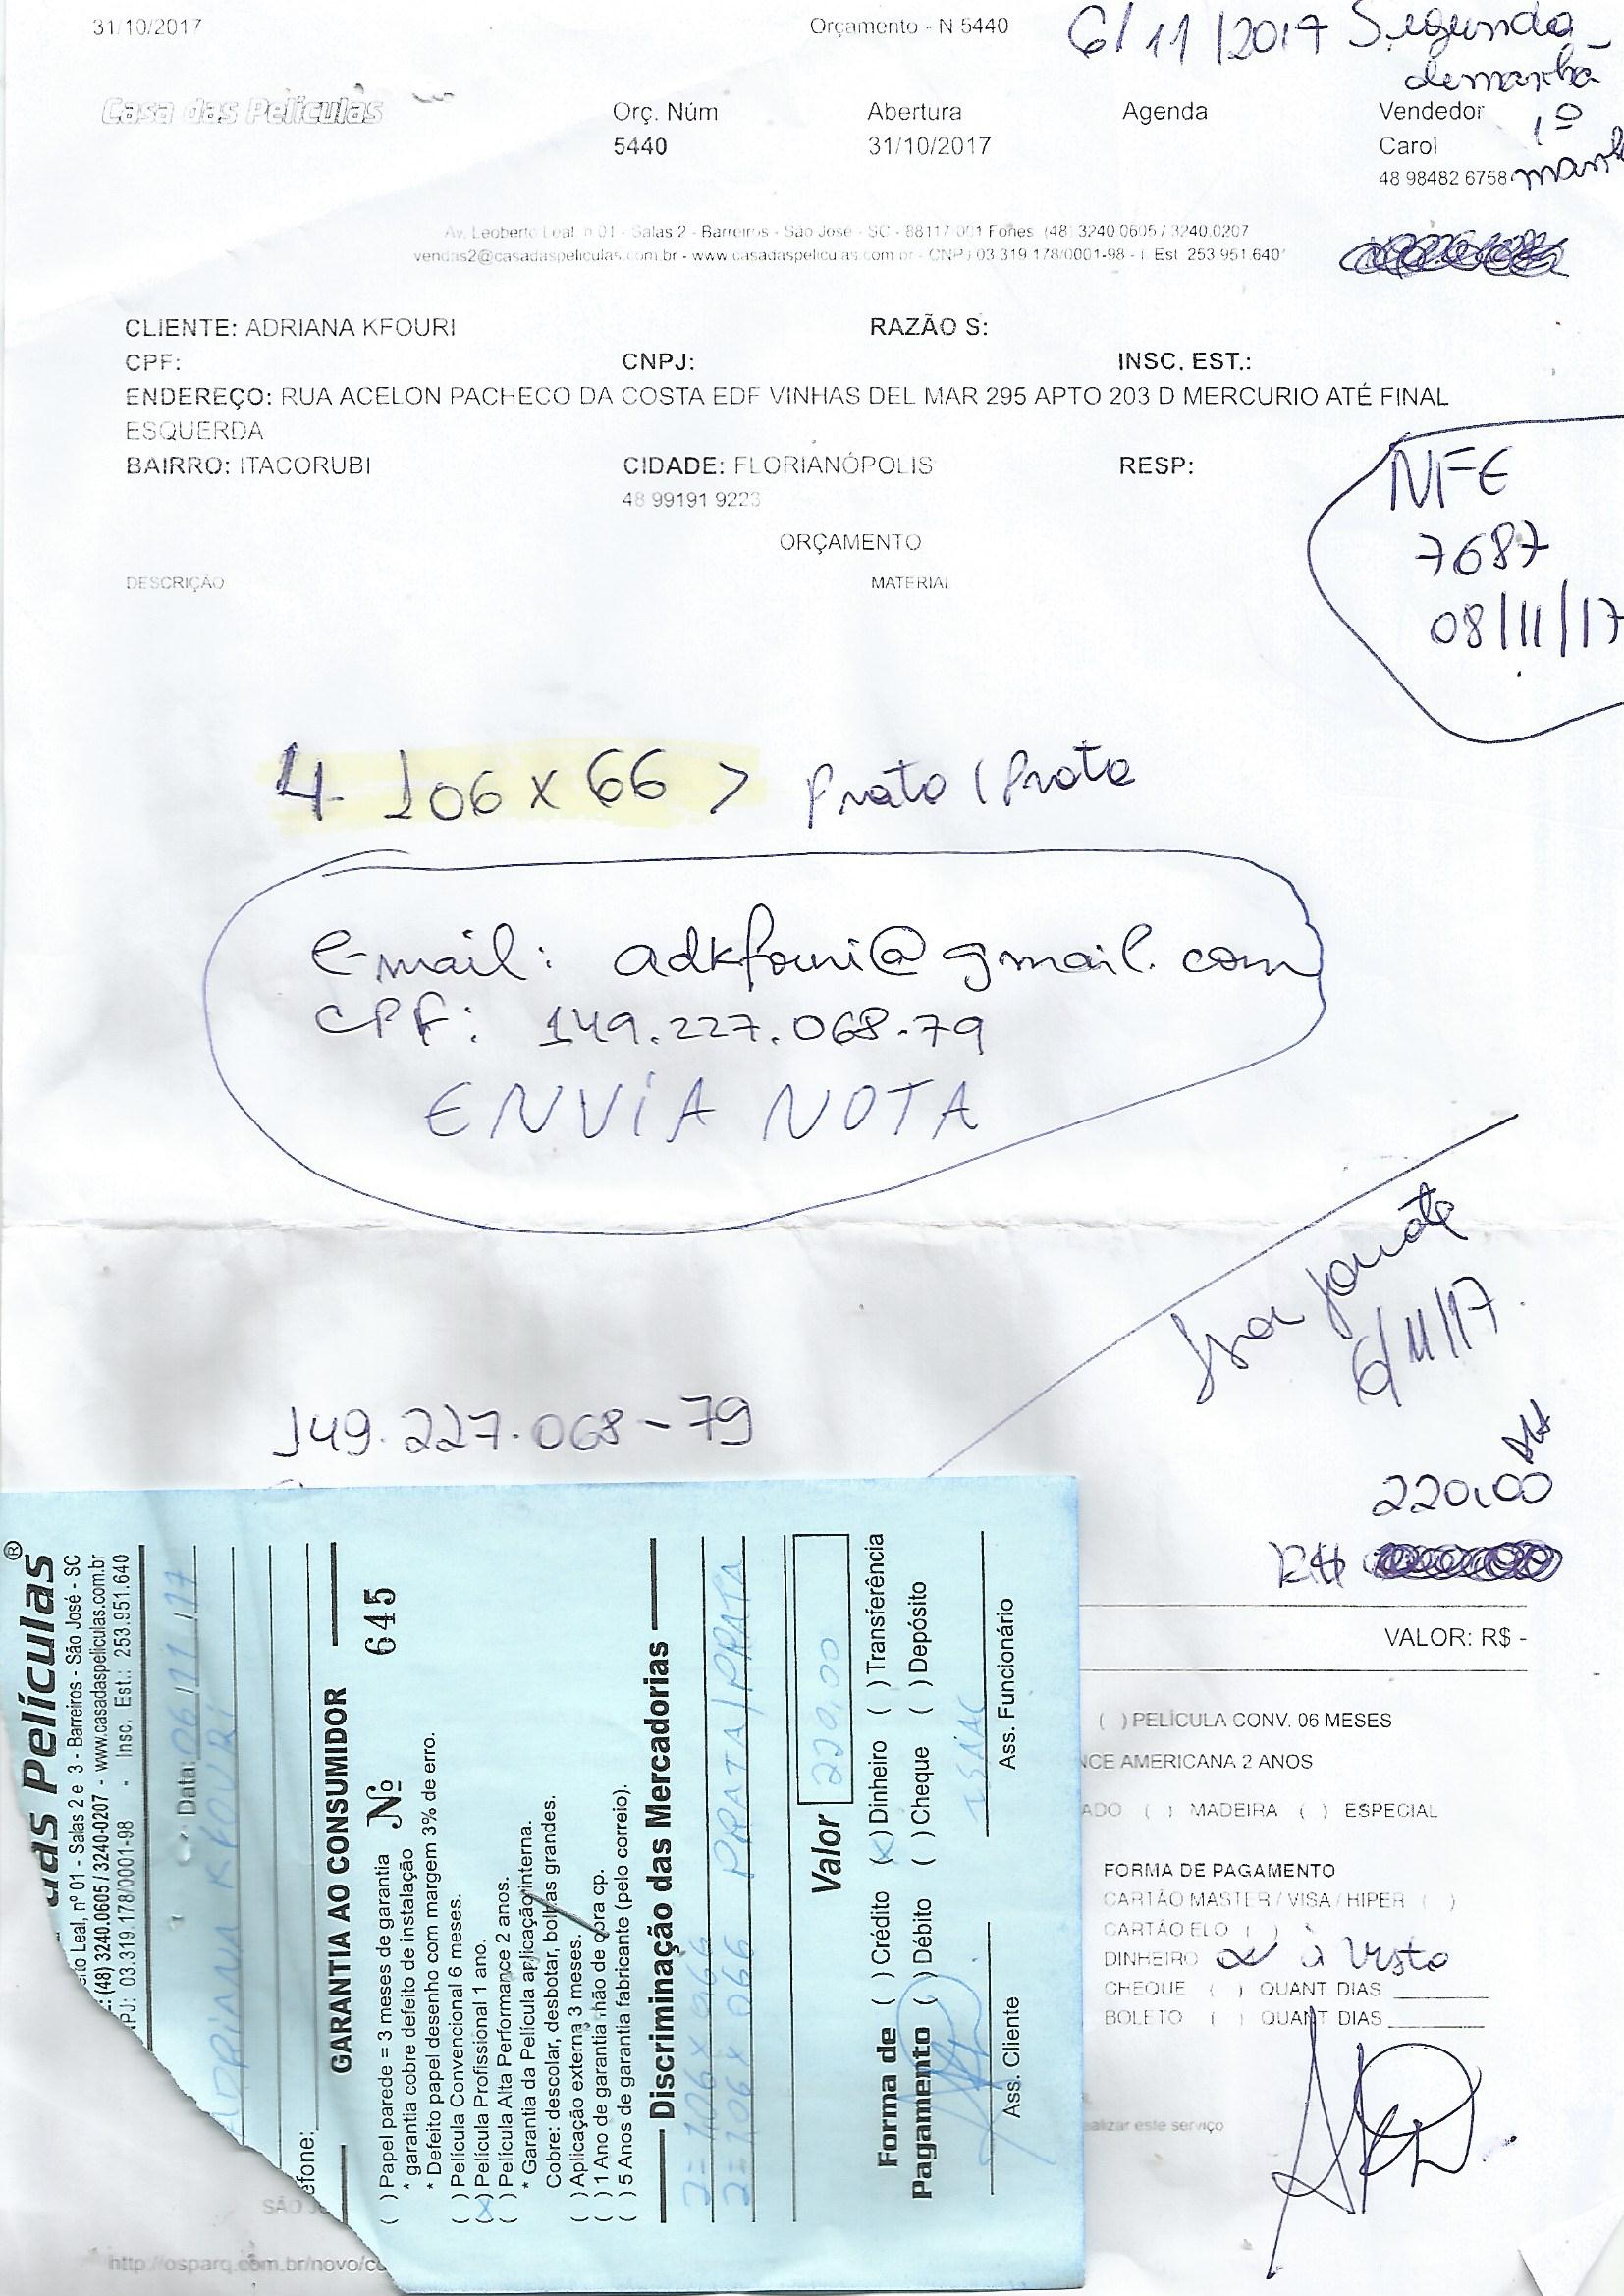 31/10/2017 Orçamento - N 5440 6/11/2017 Segunda
demanhã
Casa das Películas Orç. Núm Abertura Agenda Vendedor 1º
5440 31/10/2017 Carol
48 98482 6758
Av. Leoberto Leal, n 01 - Salas 2 - Barreiros - São José - SC - 88117-001 Fones (48) 3240.0605 / 3240.0207
vendas2@casadaspeliculas.com.br - www.casadaspeliculas.com.br - CNPJ 03.319.178/0001-98 - I. Est 253.951.640
CLIENTE: ADRIANA KFOURI RAZÃO S:
CPF: CNPJ: INSC. EST.:
ENDEREÇO: RUA ACELON PACHECO DA COSTA EDF VINHAS DEL MAR 295 APTO 203 D MERCURIO ATÉ FINAL
ESQUERDA
BAIRRO: ITACORUBI CIDADE: FLORIANÓPOLIS RESP:
48 99191 9223
NFE
7687
08/11/17
ORÇAMENTO
DESCRIÇÃO MATERIAL
4 106 x 66 > Prata / Prata
e-mail: adkfouri@gmail.com
CPF: 149.227.068-79
ENVIA NOTA
6/11/17
149.227.068-79
220,00
R$
VALOR: R$ -
( ) PELÍCULA CONV. 06 MESES
NCE AMERICANA 2 ANOS
ADO ( ) MADEIRA ( ) ESPECIAL
FORMA DE PAGAMENTO
CARTÃO MASTER / VISA / HIPER ( )
CARTÃO ELO ( )
DINHEIRO à Vista
CHEQUE ( ) QUANT DIAS
BOLETO ( ) QUANT DIAS
alizar este serviço
SÃO J
http://osparq.com.br/novo/co
das Películas®
erto Leal, nº 01 - Salas 2 e 3 - Barreiros - São José - SC
: (48) 3240.0605 / 3240-0207 - www.casadaspeliculas.com.br
NPJ: 03.319.178/0001-98 - Insc. Est.: 253.951.640
Data: 06/11/17
ADRIANA KFOURI
efone:
GARANTIA AO CONSUMIDOR
( ) Papel parede = 3 meses de garantia Nº 645
* garantia cobre defeito de instalação
* Defeito papel desenho com margem 3% de erro.
( ) Película Convencional 6 meses.
(x) Película Profissional 1 ano.
( ) Película Alta Performance 2 anos.
* Garantia da Película aplicação interna.
Cobre: descolar, desbotar, bolhas grandes.
( ) Aplicação externa 3 meses.
( ) 1 Ano de garantia mão de obra cp.
( ) 5 Anos de garantia fabricante (pelo correio).
Discriminação das Mercadorias
2= 106 x 066
2= 106 x 066 PRATA/PRATA
Valor 220,00
Forma de Pagamento ( ) Crédito (x) Dinheiro ( ) Transferência
( ) Débito ( ) Cheque ( ) Depósito
ISAAC
Ass. Cliente Ass. Funcionário